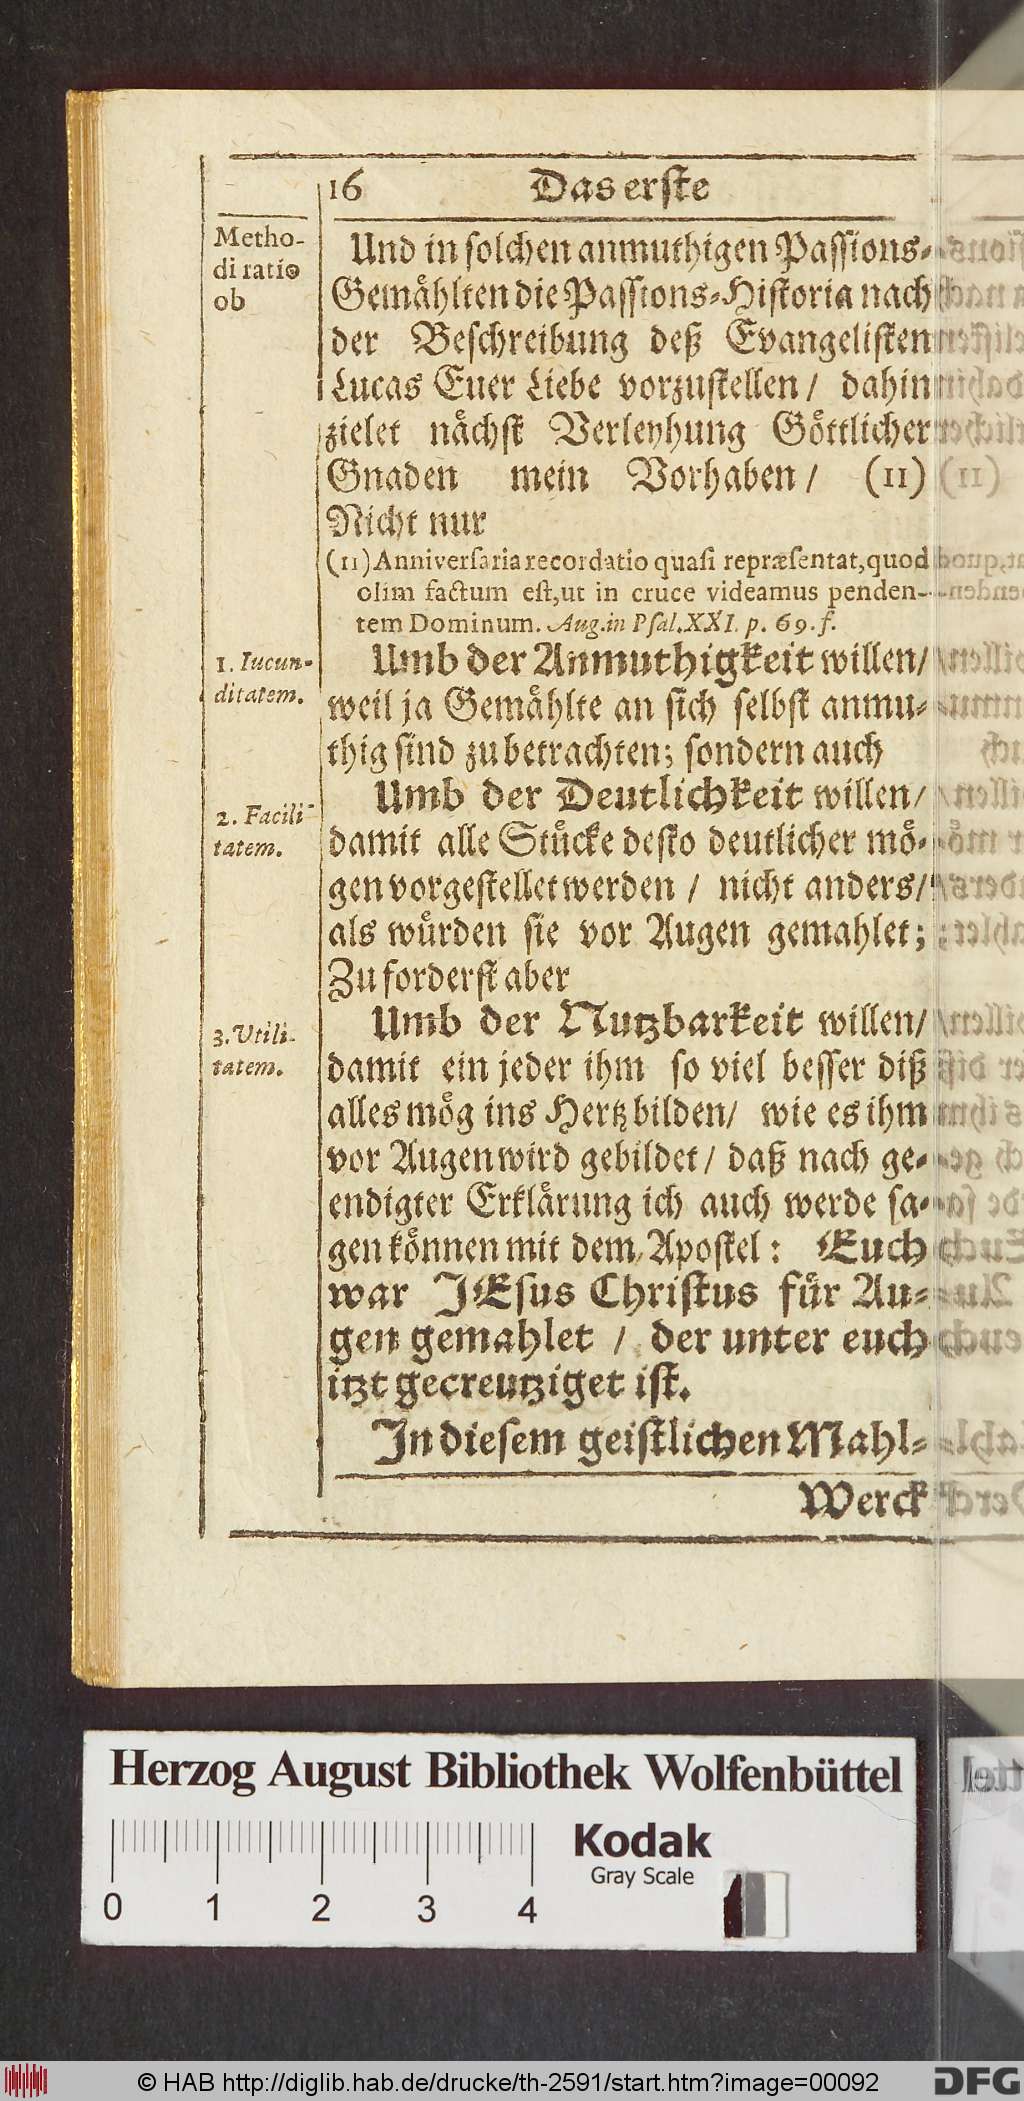 16 Das erste
Metho-
di ratio
ob
Und in solchen anmuthigen Passions-
Gemåhlten die Passions-Historia nach
der Beschreibung deß Evangelisten
Lucas Euer Liebe vorzustellen / dahin
zielet nåchst Verleyhung Gôttlicher
Gnaden mein Vorhaben / (11)
Nicht nur
(11) Anniversaria recordatio quasi repræsentat, quod
olim factum est, ut in cruce videamus penden-
tem Dominum. Aug. in Psal. XXI. p. 69. f.
1. Iucun-
ditatem.
Umb der Anmuthigkeit willen /
weil ja Gemåhlte an sich selbst anmu-
thig sind zu betrachten; sondern auch
2. Facili-
tatem.
Umb der Deutlichkeit willen /
damit alle Stůcke desto deutlicher mô-
gen vorgestellet werden / nicht anders /
als wůrden sie vor Augen gemahlet;
Zu forderst aber
3. Utili-
tatem.
Umb der Nutzbarkeit willen /
damit ein jeder ihm so viel besser diß
alles môg ins Hertz bilden / wie es ihm
vor Augen wird gebildet / daß nach ge-
endigter Erklårung ich auch werde sa-
gen kônnen mit dem Apostel: Euch
war JEsus Christus fůr Au-
gen gemahlet / der unter euch
itzt gecreutziget ist.
In diesem geistlichen Mahl-
Werck
Herzog August Bibliothek Wolfenbüttel
Kodak
Gray Scale
0 1 2 3 4
© HAB http://diglib.hab.de/drucke/th-2591/start.htm?image=00092
DFG